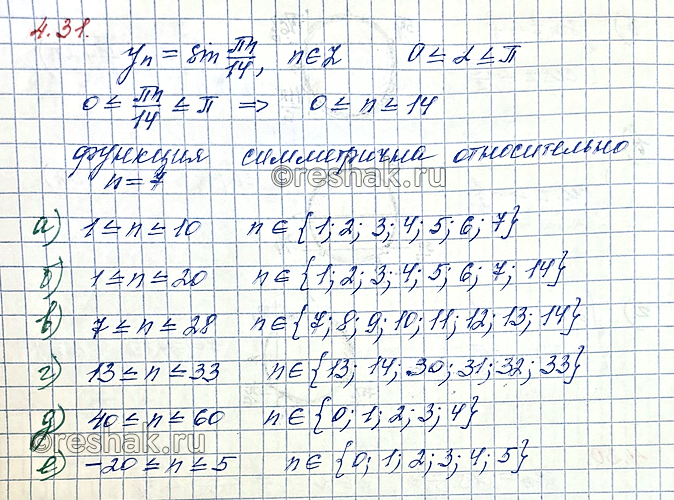 4.31.
yₙ = sin πn/14, n∈Z 0 ≤ α ≤ π
0 ≤ πn/14 ≤ π => 0 ≤ n ≤ 14
функция симметрична относительно
n = 7
©reshak.ru
а) 1 ≤ n ≤ 10 n ∈ {1; 2; 3; 4; 5; 6; 7}
б) 1 ≤ n ≤ 20 n ∈ {1; 2; 3; 4; 5; 6; 7; 14}
в) 7 ≤ n ≤ 28 n ∈ {7; 8; 9; 10; 11; 12; 13; 14}
г) 13 ≤ n ≤ 33 n ∈ {13; 14; 30; 31; 32; 33}
д) 40 ≤ n ≤ 60 n ∈ {0; 1; 2; 3; 4}
©reshak.ru
е) -20 ≤ n ≤ 5 n ∈ {0; 1; 2; 3; 4; 5}